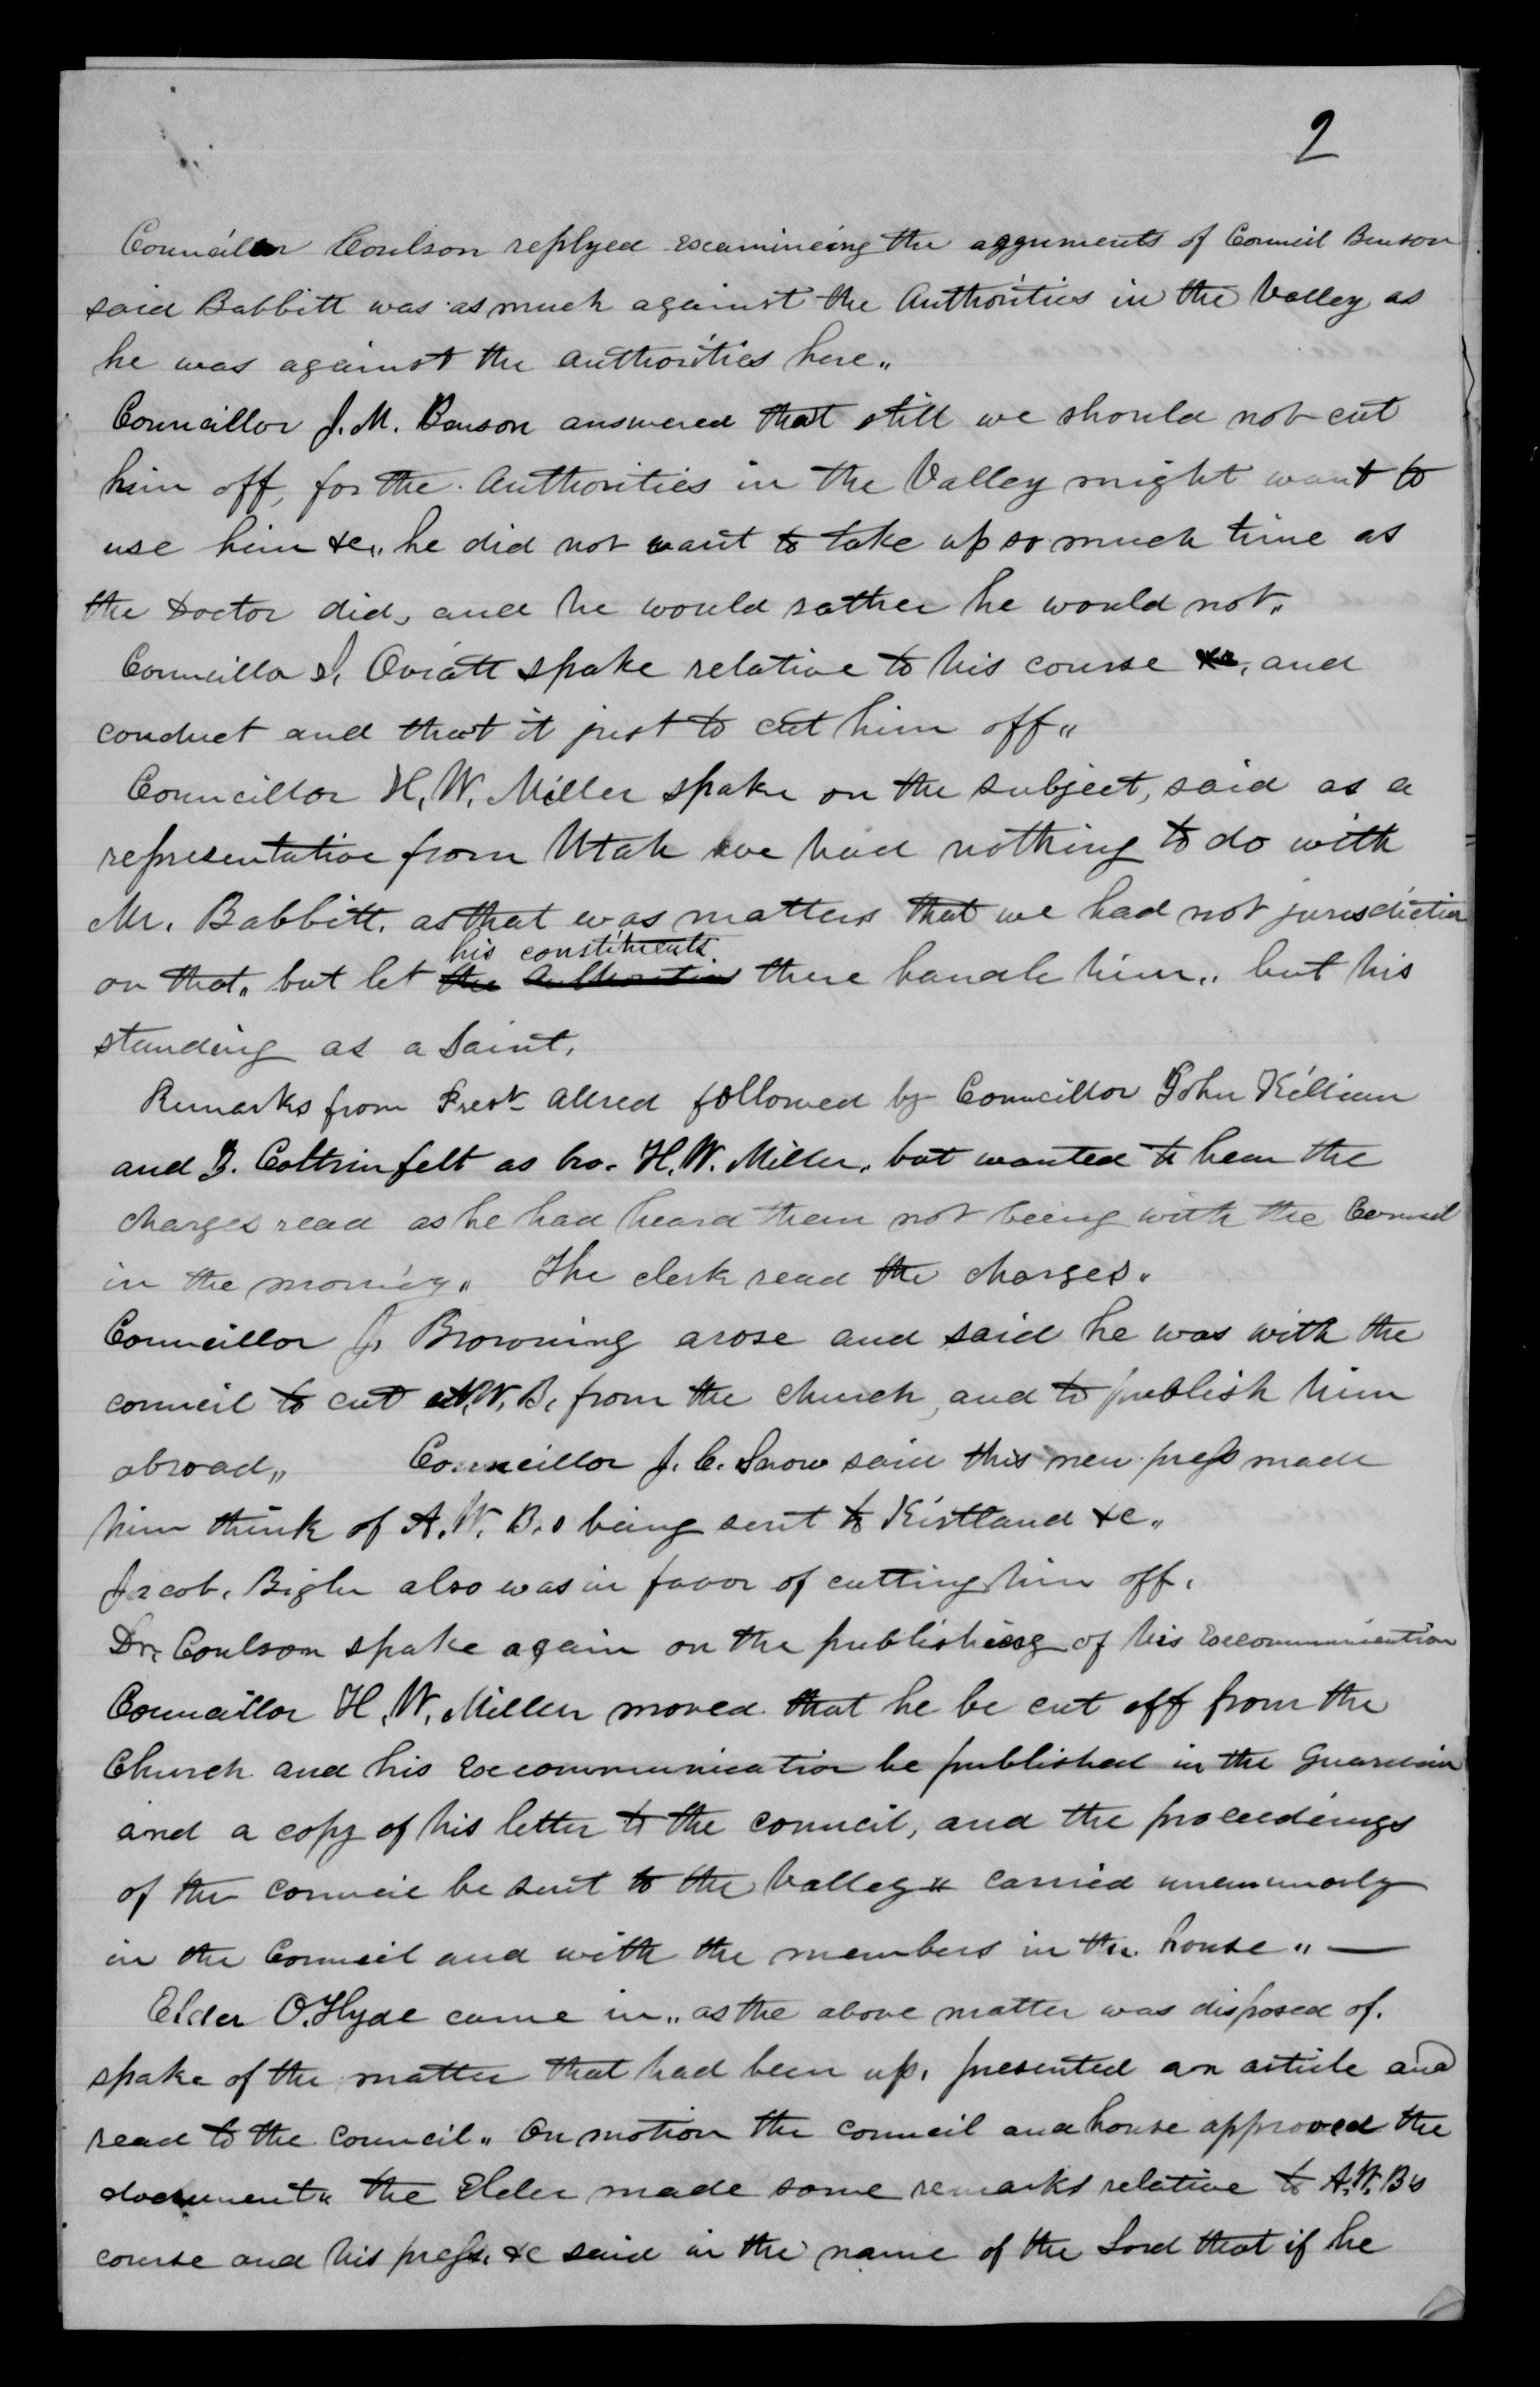 2
Councillor Coulson replyed examineing the agguments of Council Benson
said Babbitt was as much against the Authorities in the Valley as
he was against the authorities here„
Councillor J. M. Benson answered that still we should not cut
him off, for the Authorities in the Valley might want to
use him &c„ he did not want to take up so much time as
the Doctor did, and he would rather he would not„
Councillo I. Oviatt spake relative to his course &c, and
conduct and that it just to cut him off„
Councillor H. W. Miller spake on the subject, said as a
representative from Utah we had nothing to do with
Mr. Babbitt. as that was matters that we had not jurisdiction
his constituents
on that„ but let the Authorities there handle him„ but his
standing as a Saint.
Remarks from Prest Allred followed by Councillor John Killian
and Z. Coltrin felt as bro. H. W. Miller. but wanted to hear the
charges read as he had heard them not being with the Council
in the morning„ The clerk read the charges„
Councillor J. Browning arose and said he was with the
council to cut A. W. B. from the church, and to publish him
abroad„ Councillor J. C. Snow said this new press made
him think of A. W. B.s being sent to Kirtland &c„
Jacob. Bigler also was in favor of cutting him off.
Dr. Coulson spake again on the publishing of his Excommunication
Councillor H. W. Miller moved that he be cut off from the
Church and his Excommunication be published in the Guardian
and a copy of his letter to the council, and the proceedings
of the council be sent to the Valley„ carried unanimously
in the Council and with the members in the house„ —
Elder O. Hyde came in„ as the above matter was disposed of.
spake of the matter that had been up. presented an article and
read to the council„ On motion the council and house approved the
document„ the Elder made some remarks relative to A. W. Bs
course and his press. &c said in the name of the Lord that if he